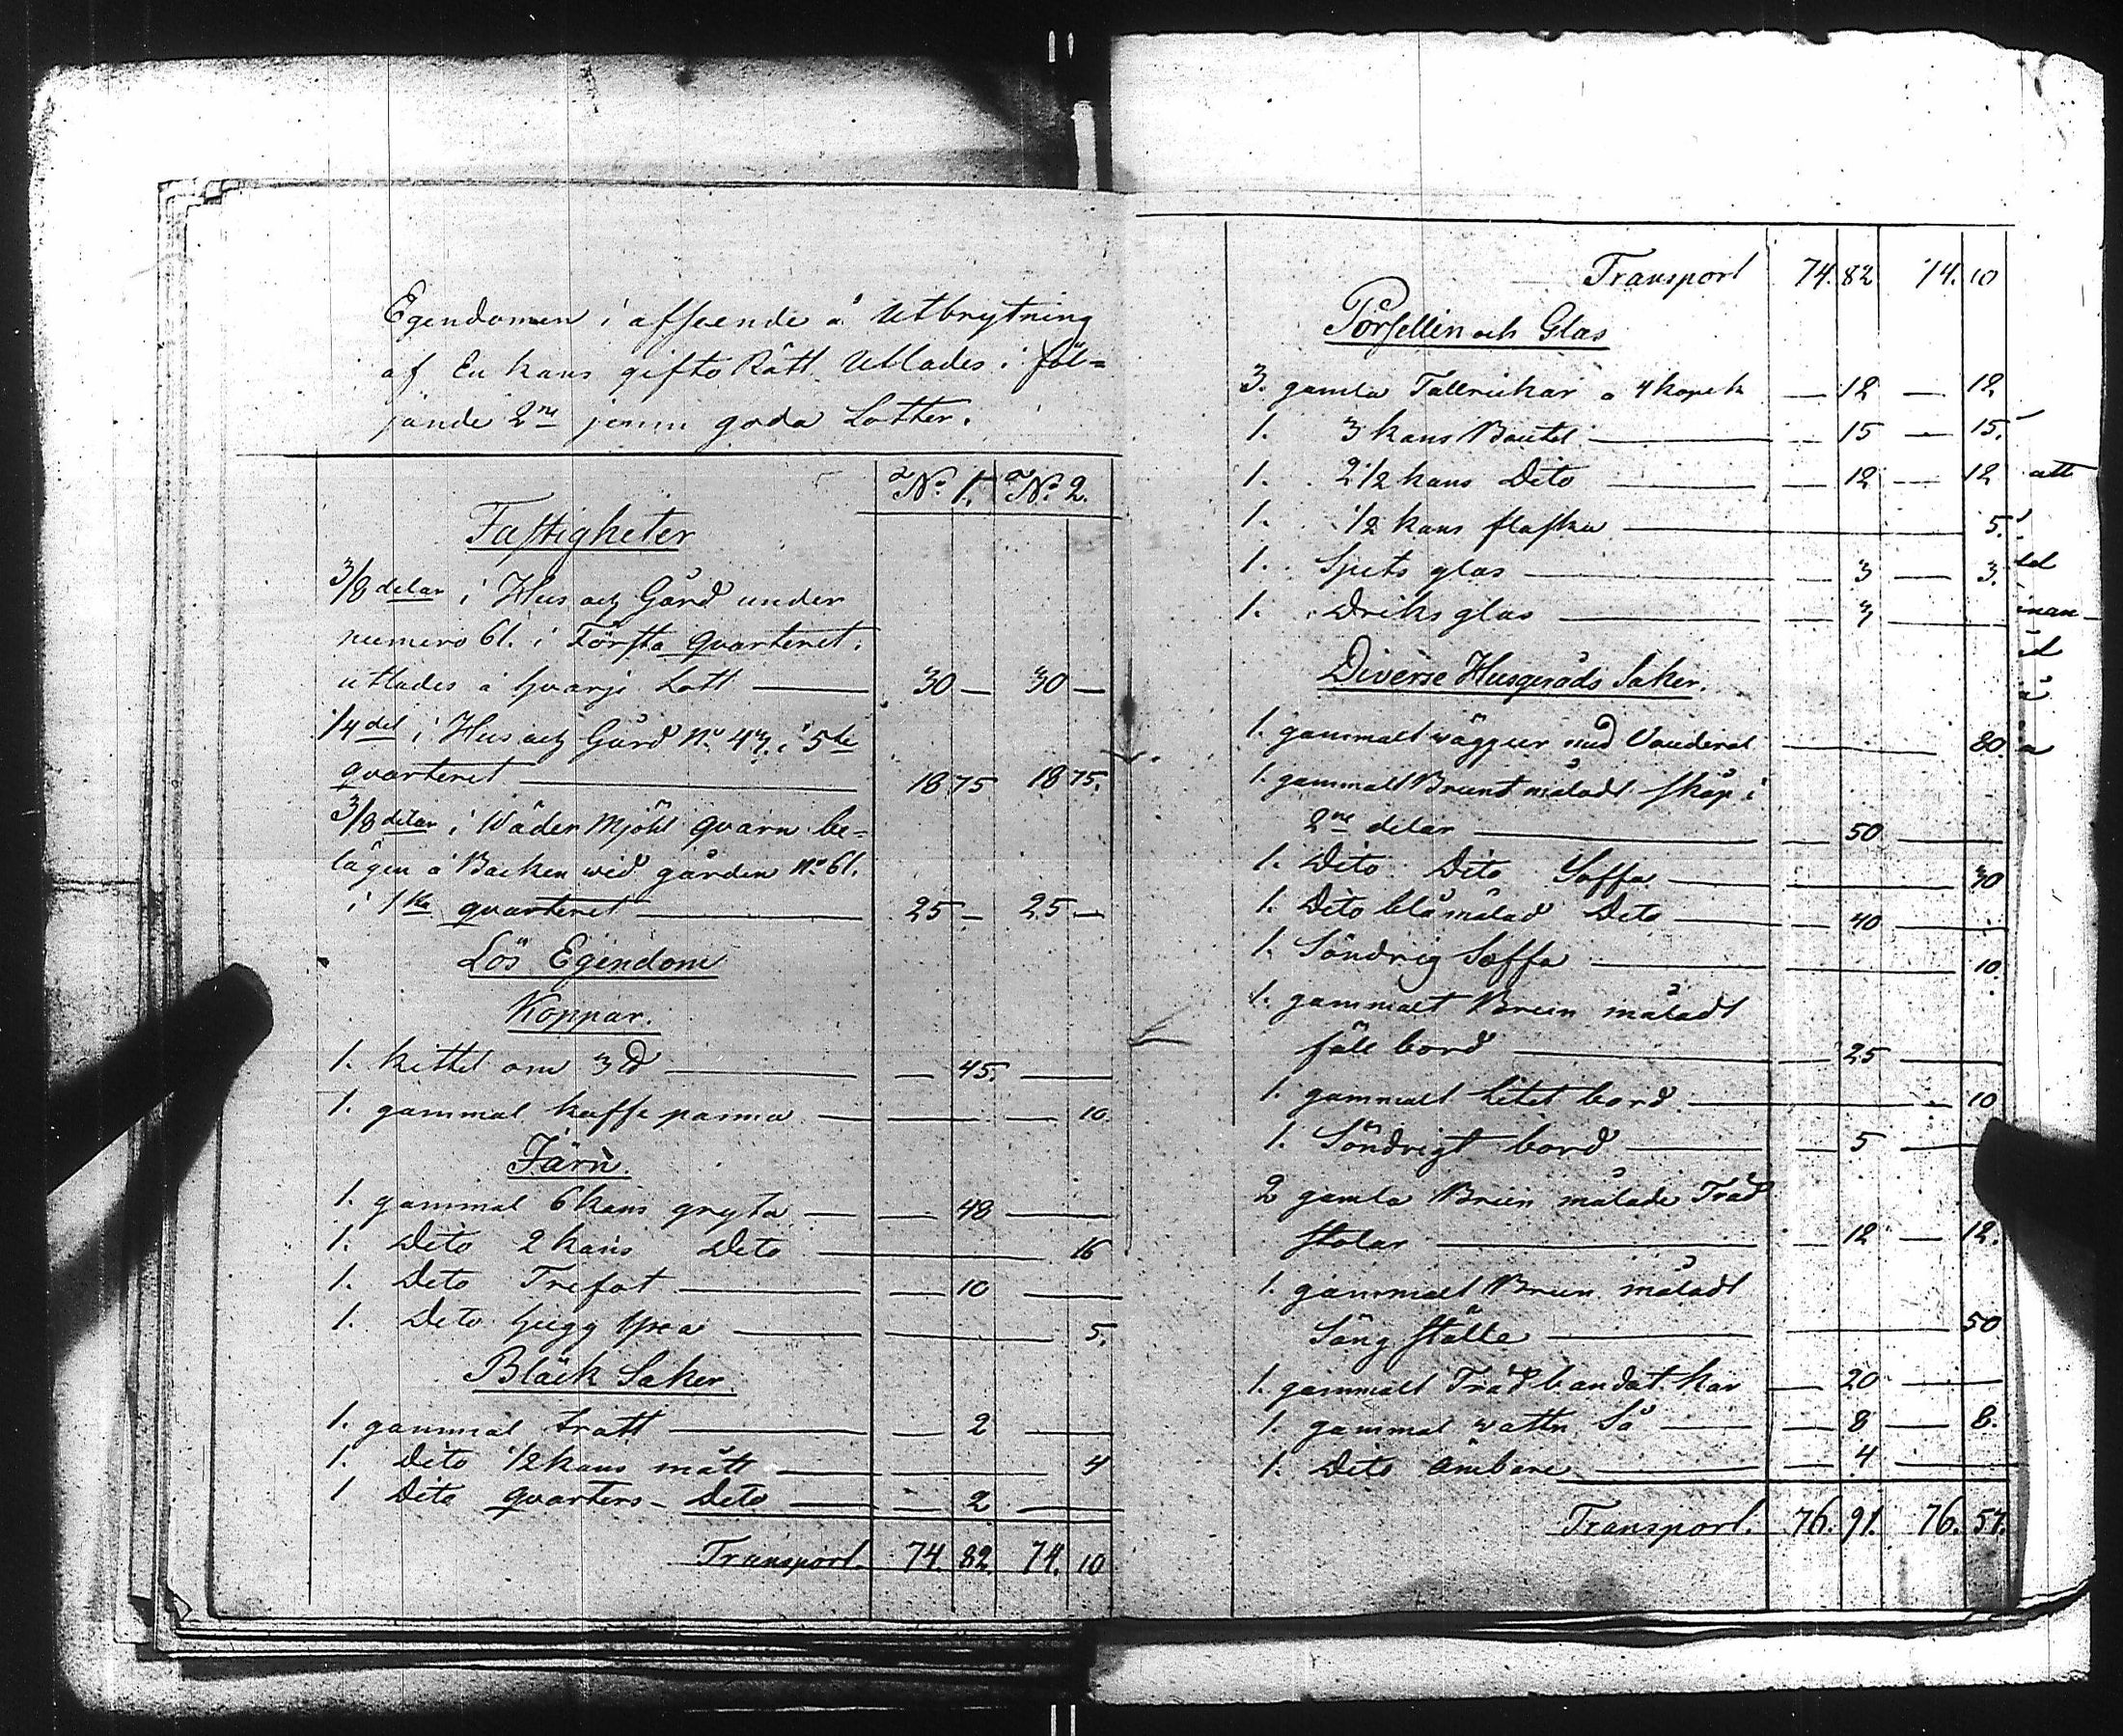 Egendomen i afseende å Utbrytning
af Enkans gifto Rätt Utlades i föl=
jande 2ne jemn goda Lotter.
No 1. No 2.
Fastigheter
3/8 delar i Hus och Gård under
numero 61. i Första quarteret.
utlades å hvarje Lott — 30 — 30 —
1/4 del i Hus och Gård No 47. i 5te
quarteret — 18 75 18 75.
3/8 delar i Wäder Mjöhl quarn be=
lägen å Backen wid gården No 61.
i 1sta quarteret — 25 — 25 —
Lös Egendom
Koppar.
1. kittel om 3 ℔ — 45. —
1. gammal kaffe panna — 10
Järn.
1. gammal 6 kans gryta — 48 —
1. Dito 2 kans Dito — 16
1. Dito Trefot — 10 —
1. Dito hugg yxa — 5.
Bläck Saker.
1. gammal tratt — 2 —
1. Dito 1/2 kans mått — 4
1 Dito quarters - Dito — 2 —
Transport. 74. 82. 74. 10
Transport 74. 82 74. 10
Porsellin och Glas
3. gamla Tallrickar a 4 kopek — 12 — 12
1. 3 kans Boutel — 15 — 15.
1. 2 1/2 kans Dito — 12 — 12
1. 1/2 kans flaska — 5.
1. Spets glas — 3 — 3.
1. Driks glas — 3 —
Diverse Husgeråds Saker.
1. gammalt väggur med Vouderal — 80.
1. gammalt Brunt måladt skåp i
2ne delar — 50 —
1. Dito Dito Soffa — 30
1. Dito blåmålad Dito — 40 —
1. Söndrig Soffa — 10.
1. gammalt Brun måladt
fäll bord — 25 —
1. gammalt litet bord — 10
1. Söndrigt bord — 5 —
2 gamla Brun målade Träd
stolar — 12 — 12.
1. gammalt Brun måladt
Säng ställe — 50
1. gammalt Träd bandat kar — 20 —
1. gammal wattn Så — 8 — 8.
1. Dito ämbare — 4 —
Transport. 76. 91. 76. 57.
att